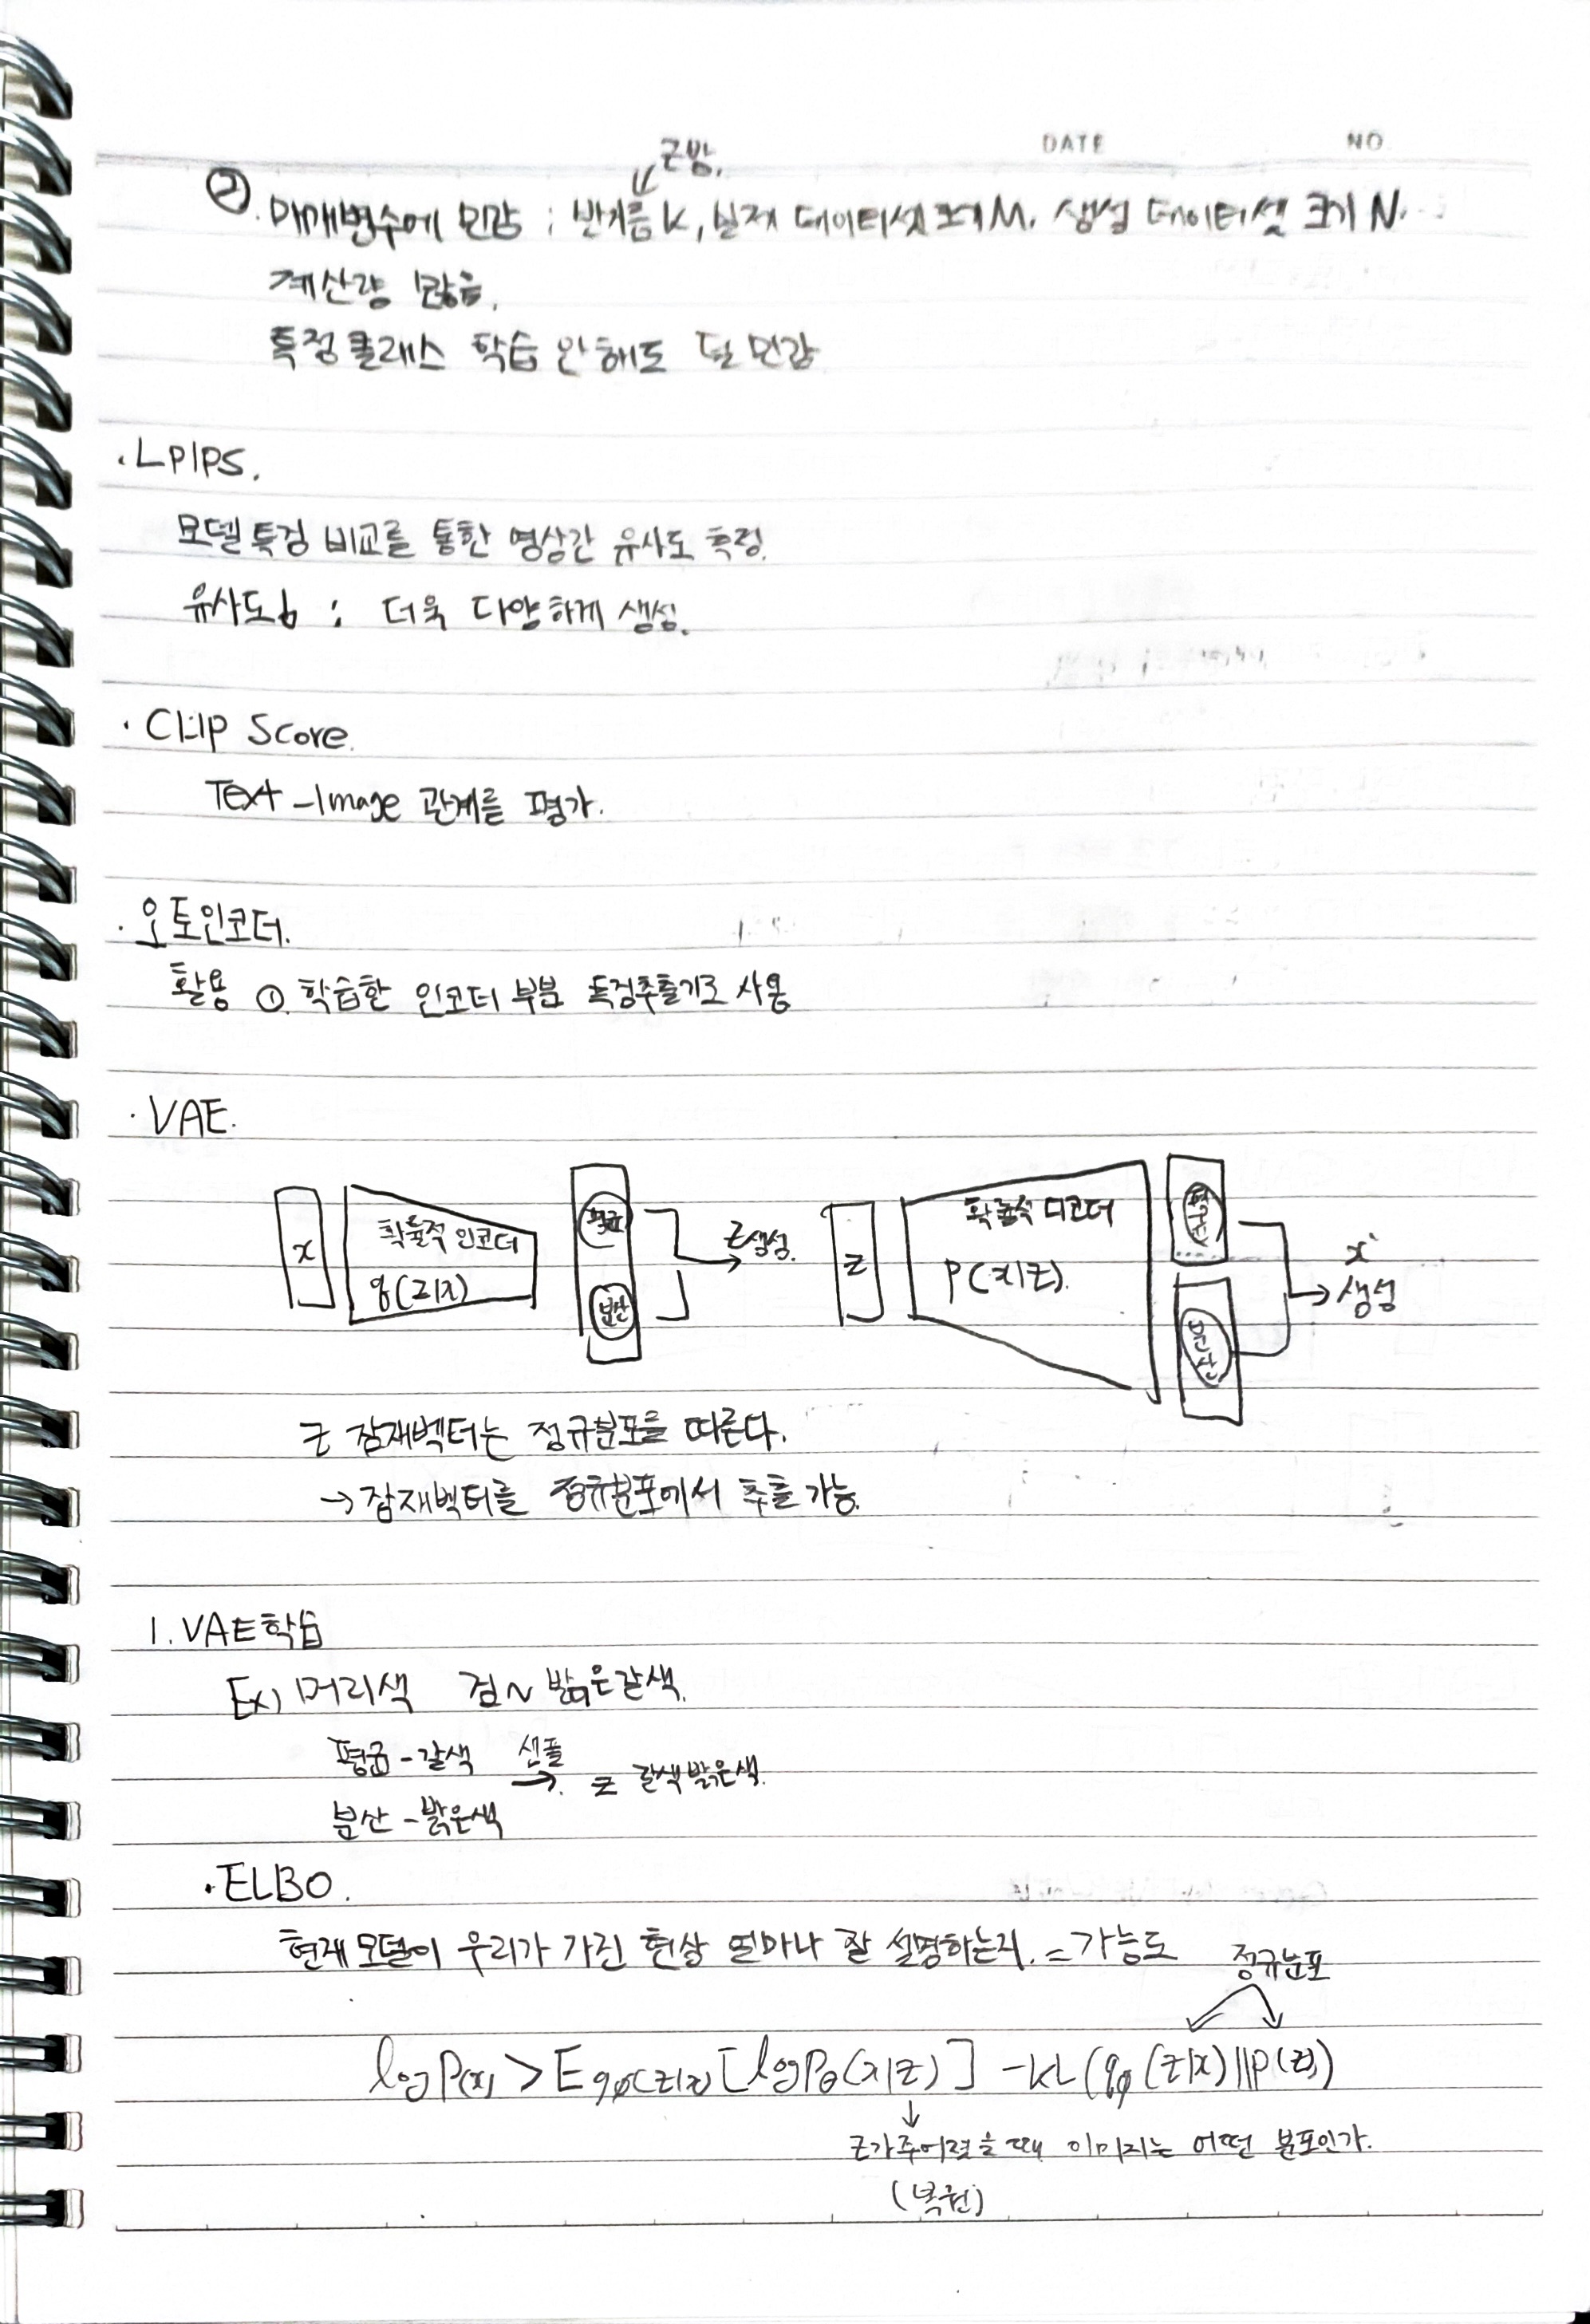 DATE NO
근방.
② 매개변수에 민감 : 반지름 K, 실제 데이터셋 크기 M, 생성 데이터셋 크기 N.
계산량 많음.
특정 클래스 학습 안해도 덜 민감
· LPIPS.
모델 특징 비교를 통한 영상간 유사도 측정.
유사도 : 더욱 다양하게 생성.
· CLIP Score.
Text-Image 관계를 평가.
· 오토인코더.
활용 ①. 학습한 인코더 부분 특징추출기로 사용
· VAE.
x
확률적 인코더
q(z|x)
평균
분산
z생성.
z
확률적 디코더
p(x|z).
평균
분산
x'
생성
z 잠재벡터는 정규분포를 따른다.
→ 잠재벡터를 정규분포에서 추출 가능.
1. VAE 학습
Ex) 머리색 검~밝은갈색.
평균 - 갈색 샘플 → z 갈색밝은색.
분산 - 밝은색
· ELBO.
현재 모델이 우리가 가진 현상 얼마나 잘 설명하는지. = 가능도
정규분포
log P(x) > E qφ(z|x) [log Pθ(x|z)] - KL(qφ(z|x)||p(z))
↓
z가 주어졌을 때 이미지는 어떤 분포인가.
(복원)